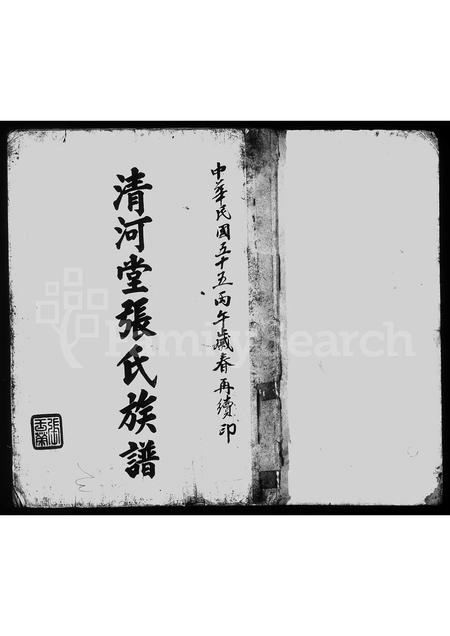 中華民國五十五丙午歲春再續印
清河堂張氏族譜
FamilySearch